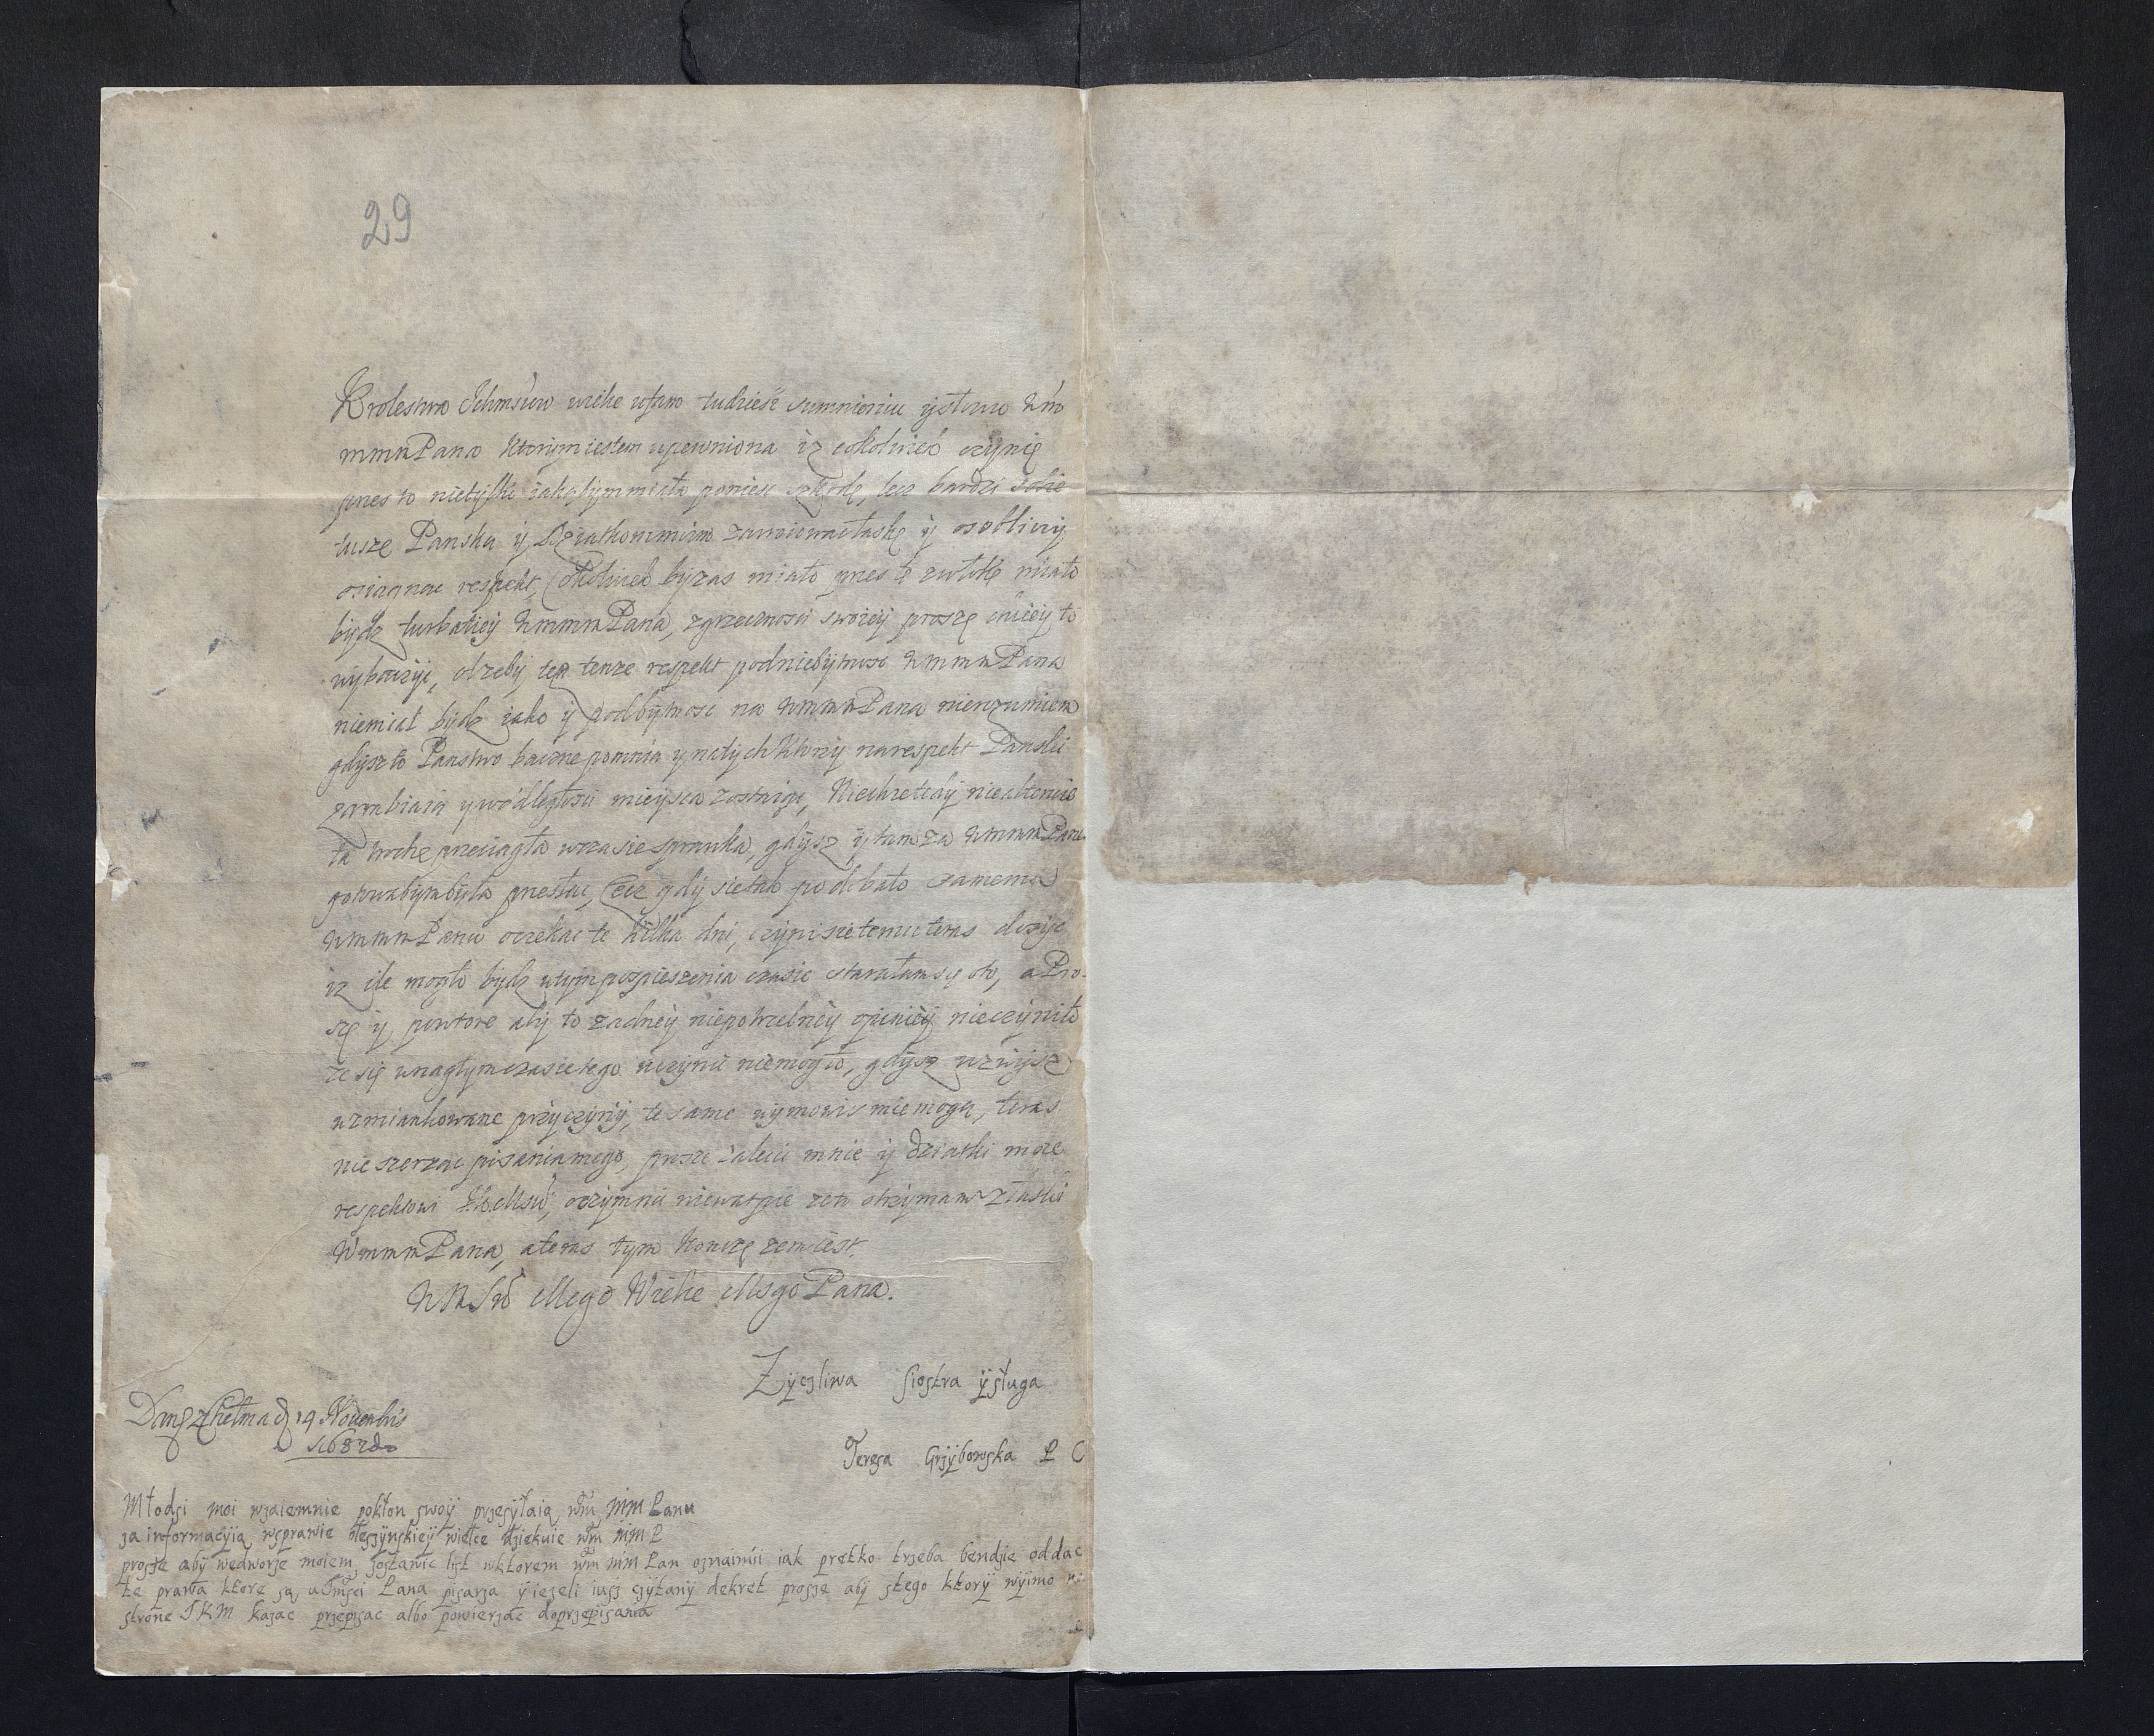 29
Krolestwo Ichmsciow wielce ufam tudziesz sumnieniu y słowu Wm
mmm Pana Ktorym iestem upewniona iz cokolwiek czynię
przes to nietylko iakabym miała ponieść szkodę, lecz bardzi sobie
tuszę Panska y Dziatkom mim zawiowac łaskę y osobliwy
osiągnac respekt, Cokolwiek by zas miało przes tę zwłokę miało
bydz turbaticy Wmmm Pana, z grzecznosci swoiey proszę chciey to
wybaczyc, a zeby ten tenze respekt pod niebytnosc Wmmm Pana
niemiał bydz iako y pod bytnosc na Wmmm Pana nierozumiem
gdysz to Panstwo baczne pomnia y na tych Ktorzy na respekt Panski
zarabiaią y w odległosci mieysca zostaige, Niechze tedy
ta trochę przeciągła w czasie sprawka, gdysz y tam za Wmmm Pane
gotowabym była przestac, lecz gdy sie tak podobało samemu
Wmmm Panu oczekac te kilka dni, czyni sie temu teras dosyc
iz ile mogło bydz w tym pospieszenia czasie starałam się oto, a Pro-
szę y powtore aby to zadney niepotrzebney opiniey nieczyniło
ze się w nagłym czasie tego uczynic niemogło, gdysz wzwysz
wzmiankowane przyczyny, te same wymowic mie mogą, teras
nie szerząc pisania mego, proszę zalecic mnie y dziatki moie
respektowi, o czym nic niewątpie ze to otrzymam z łaski
Wmmm Pana, a teras tym Konczę zem iest.
Mego Wielce Msgo Pana.
Zyczliwa siostra y sługa
Dan z Chełma d 14 Novembris
1682do
Teresa Grzybowska P C
Młodzi moi wzaiemnie pokłon swoy przesyłaią wm mm Panu
za informacyią wsprawie wielce dziekuie wm mm P
prosze aby wedworze moiem zostawic list wktorem wm mm Pan oznaimi iak prętko trzeba bendzie oddac
te prawa ktore są u Pana pisarza y iezeli iusz czytany dekret prosze aby stego ktory wyimo
strone IKM kazac przepisac albo powierzac doprzepisania